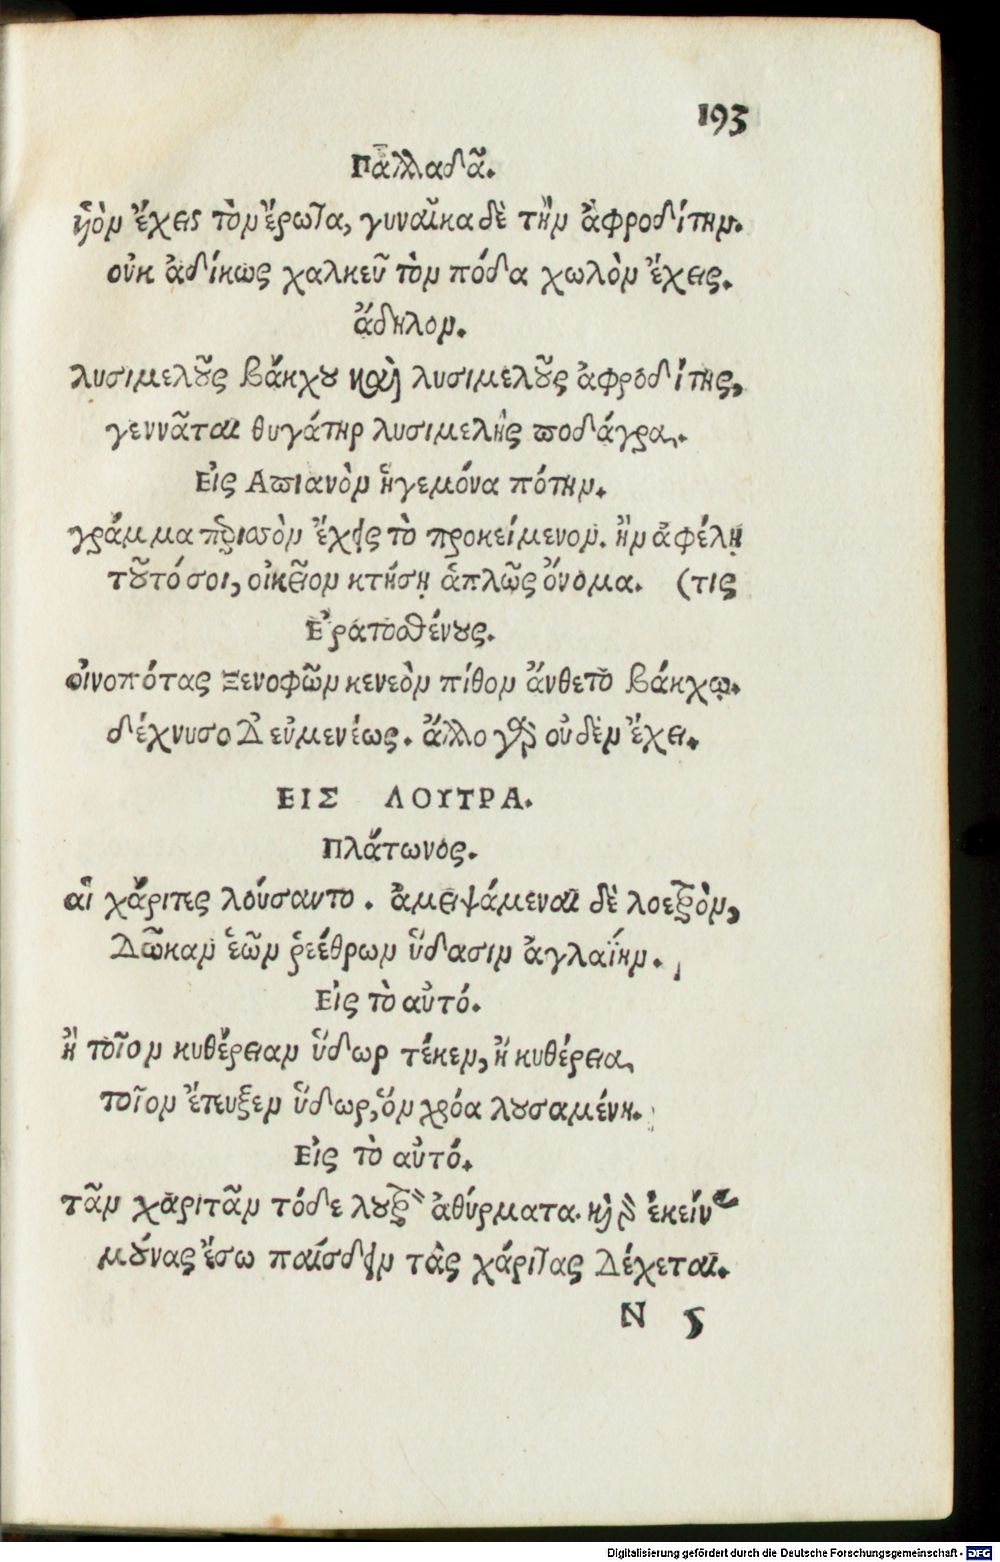 193
Παλλαδᾶ.
ὑὸν ἔχεις τὸν ἔρωτα, γυναῖκα δὲ τὴν ἀφροδίτην.
οὐκ ἀδίκως χαλκεῦ τὸν πόδα χωλὸν ἔχεις.
ἄδηλον.
λυσιμελοῦς βάκχου καὶ λυσιμελοῦς ἀφροδίτης,
γεννᾶται θυγάτηρ λυσιμελὴς ποδάγρα.
Εἰς Απιανὸν ἡγεμόνα πότην.
γράμμα περισσὸν ἔχεις τὸ προκείμενον. ἢν ἀφέλῃ
τοῦτό σοι, οἰκεῖον κτήσῃ ἁπλῶς ὄνομα. (τις
Ἐρατοσθένους.
οἰνοπότας Ξενοφῶν κενεὸν πίθον ἄνθετο βάκχῳ.
δέχνυσο Δ' εὐμενέως. ἄλλο γὰρ οὐδὲν ἔχει.
ΕΙΣ ΛΟΥΤΡΑ.
Πλάτωνος.
αἱ χάριτες λούσαντο. ἀμειψάμεναι δὲ λοετρὸν,
Δῶκαν ἑῶν ῥεέθρων ὕδασιν ἀγλαΐην.
Εἰς τὸ αὐτό.
ἢ τοῖον κυθέρειαν ὕδωρ τέκεν, ἢ κυθέρεια
τοῖον ἔτευξεν ὕδωρ, ὃν χρόα λουσαμένη.
Εἰς τὸ αὐτό.
τᾶν χαριτᾶν τόδε λουτρὸν ἀθύρματα. καὶ γὰρ ἐκείνας
μούνας ἔσω παίσδειν τὰς χάριτας Δέχεται.
N 5
Digitalisierung gefördert durch die Deutsche Forschungsgemeinschaft - DFG